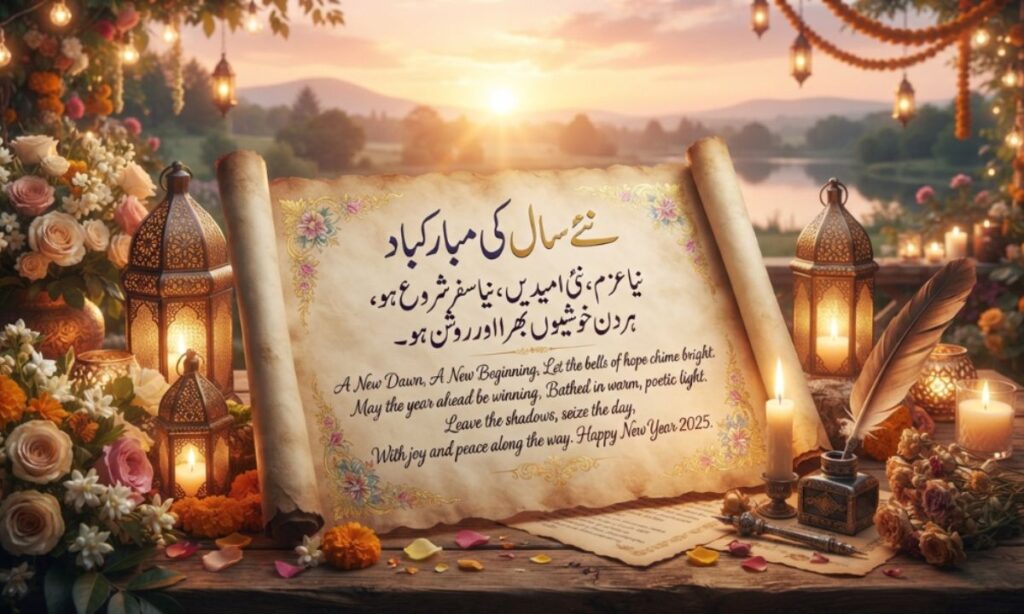 نئے سال کی مبارکباد
نیا عزم، نئی امیدیں، نیا سفر شروع ہو،
ہر دن خوشیوں بھرا اور روشن ہو۔
A New Dawn, A New Beginning, Let the bells of hope chime bright.
May the year ahead be winning, Bathed in warm, poetic light.
Leave the shadows, seize the day,
With joy and peace along the way. Happy New Year 2025.